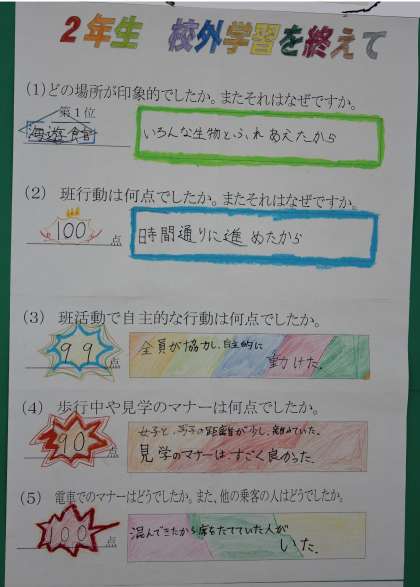 2年生 校外学習を終えて
(1)どの場所が印象的でしたか。またそれはなぜですか。
第1位
海遊館
いろんな生物とふれあえたから
(2) 班行動は何点でしたか。またそれはなぜですか。
100点
時間通りに進めたから
(3) 班活動で自主的な行動は何点でしたか。
99点
全員が協力し、自主的に
動けた。
(4) 歩行中や見学のマナーは何点でしたか。
90点
女子と、男子の距離が少し、離れていた。
見学のマナーはすごく良かった。
(5) 電車でのマナーはどうでしたか。また、他の乗客の人はどうでしたか。
100点
混んできたから席をたてていた人が
いた。